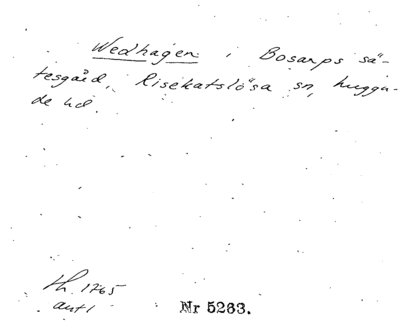 Wedhagen i Bosarps sä-
tesgård, Risekatslösa sn, Luggu-
de hd.
th. 1765
ant 1
Nr 5263.